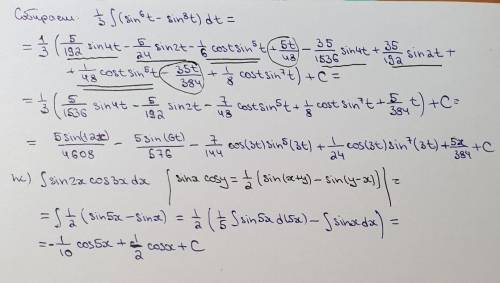 Собираем: 1/3 ∫(sin⁶t - sin⁸t) dt =
= 1/3 (5/192 sin4t - 5/24 sin2t - 1/6 cost sin⁵t + 5t/48 - 35/1536 sin4t + 35/192 sin2t +
+ 1/48 cost sin⁵t - 35t/384 + 1/8 cost sin⁷t) + C =
= 1/3 (5/1536 sin4t - 5/192 sin2t - 7/48 cost sin⁵t + 1/8 cost sin⁷t + 5/384 t) + C =
= 5sin(12x)/4608 - 5sin(6t)/576 - 7/144 cos(3t) sin⁵(3t) + 1/24 cos(3t) sin⁷(3t) + 5x/384 + C
ж) ∫ sin2x cos3x dx [sinx cosy = 1/2 (sin(x+y) - sin(y-x))] =
= ∫ 1/2 (sin5x - sinx) = 1/2 (1/5 ∫ sin5x d(5x) - ∫ sinx dx) =
= -1/10 cos5x + 1/2 cosx + C